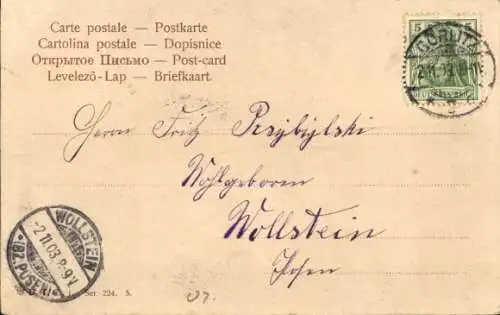 Carte postale — Postkarte
Cartolina postale — Dopisnice
Открытое Письмо — Post-card
Levelező-Lap — Briefkaart
5
GÖRLITZ
Herrn Fritz Przybylski
Wohlgeboren
Wollstein
Posen
WOLLSTEIN
-2.11.03.8-9V
(BZ. POSEN)
Ser. 224. 5.